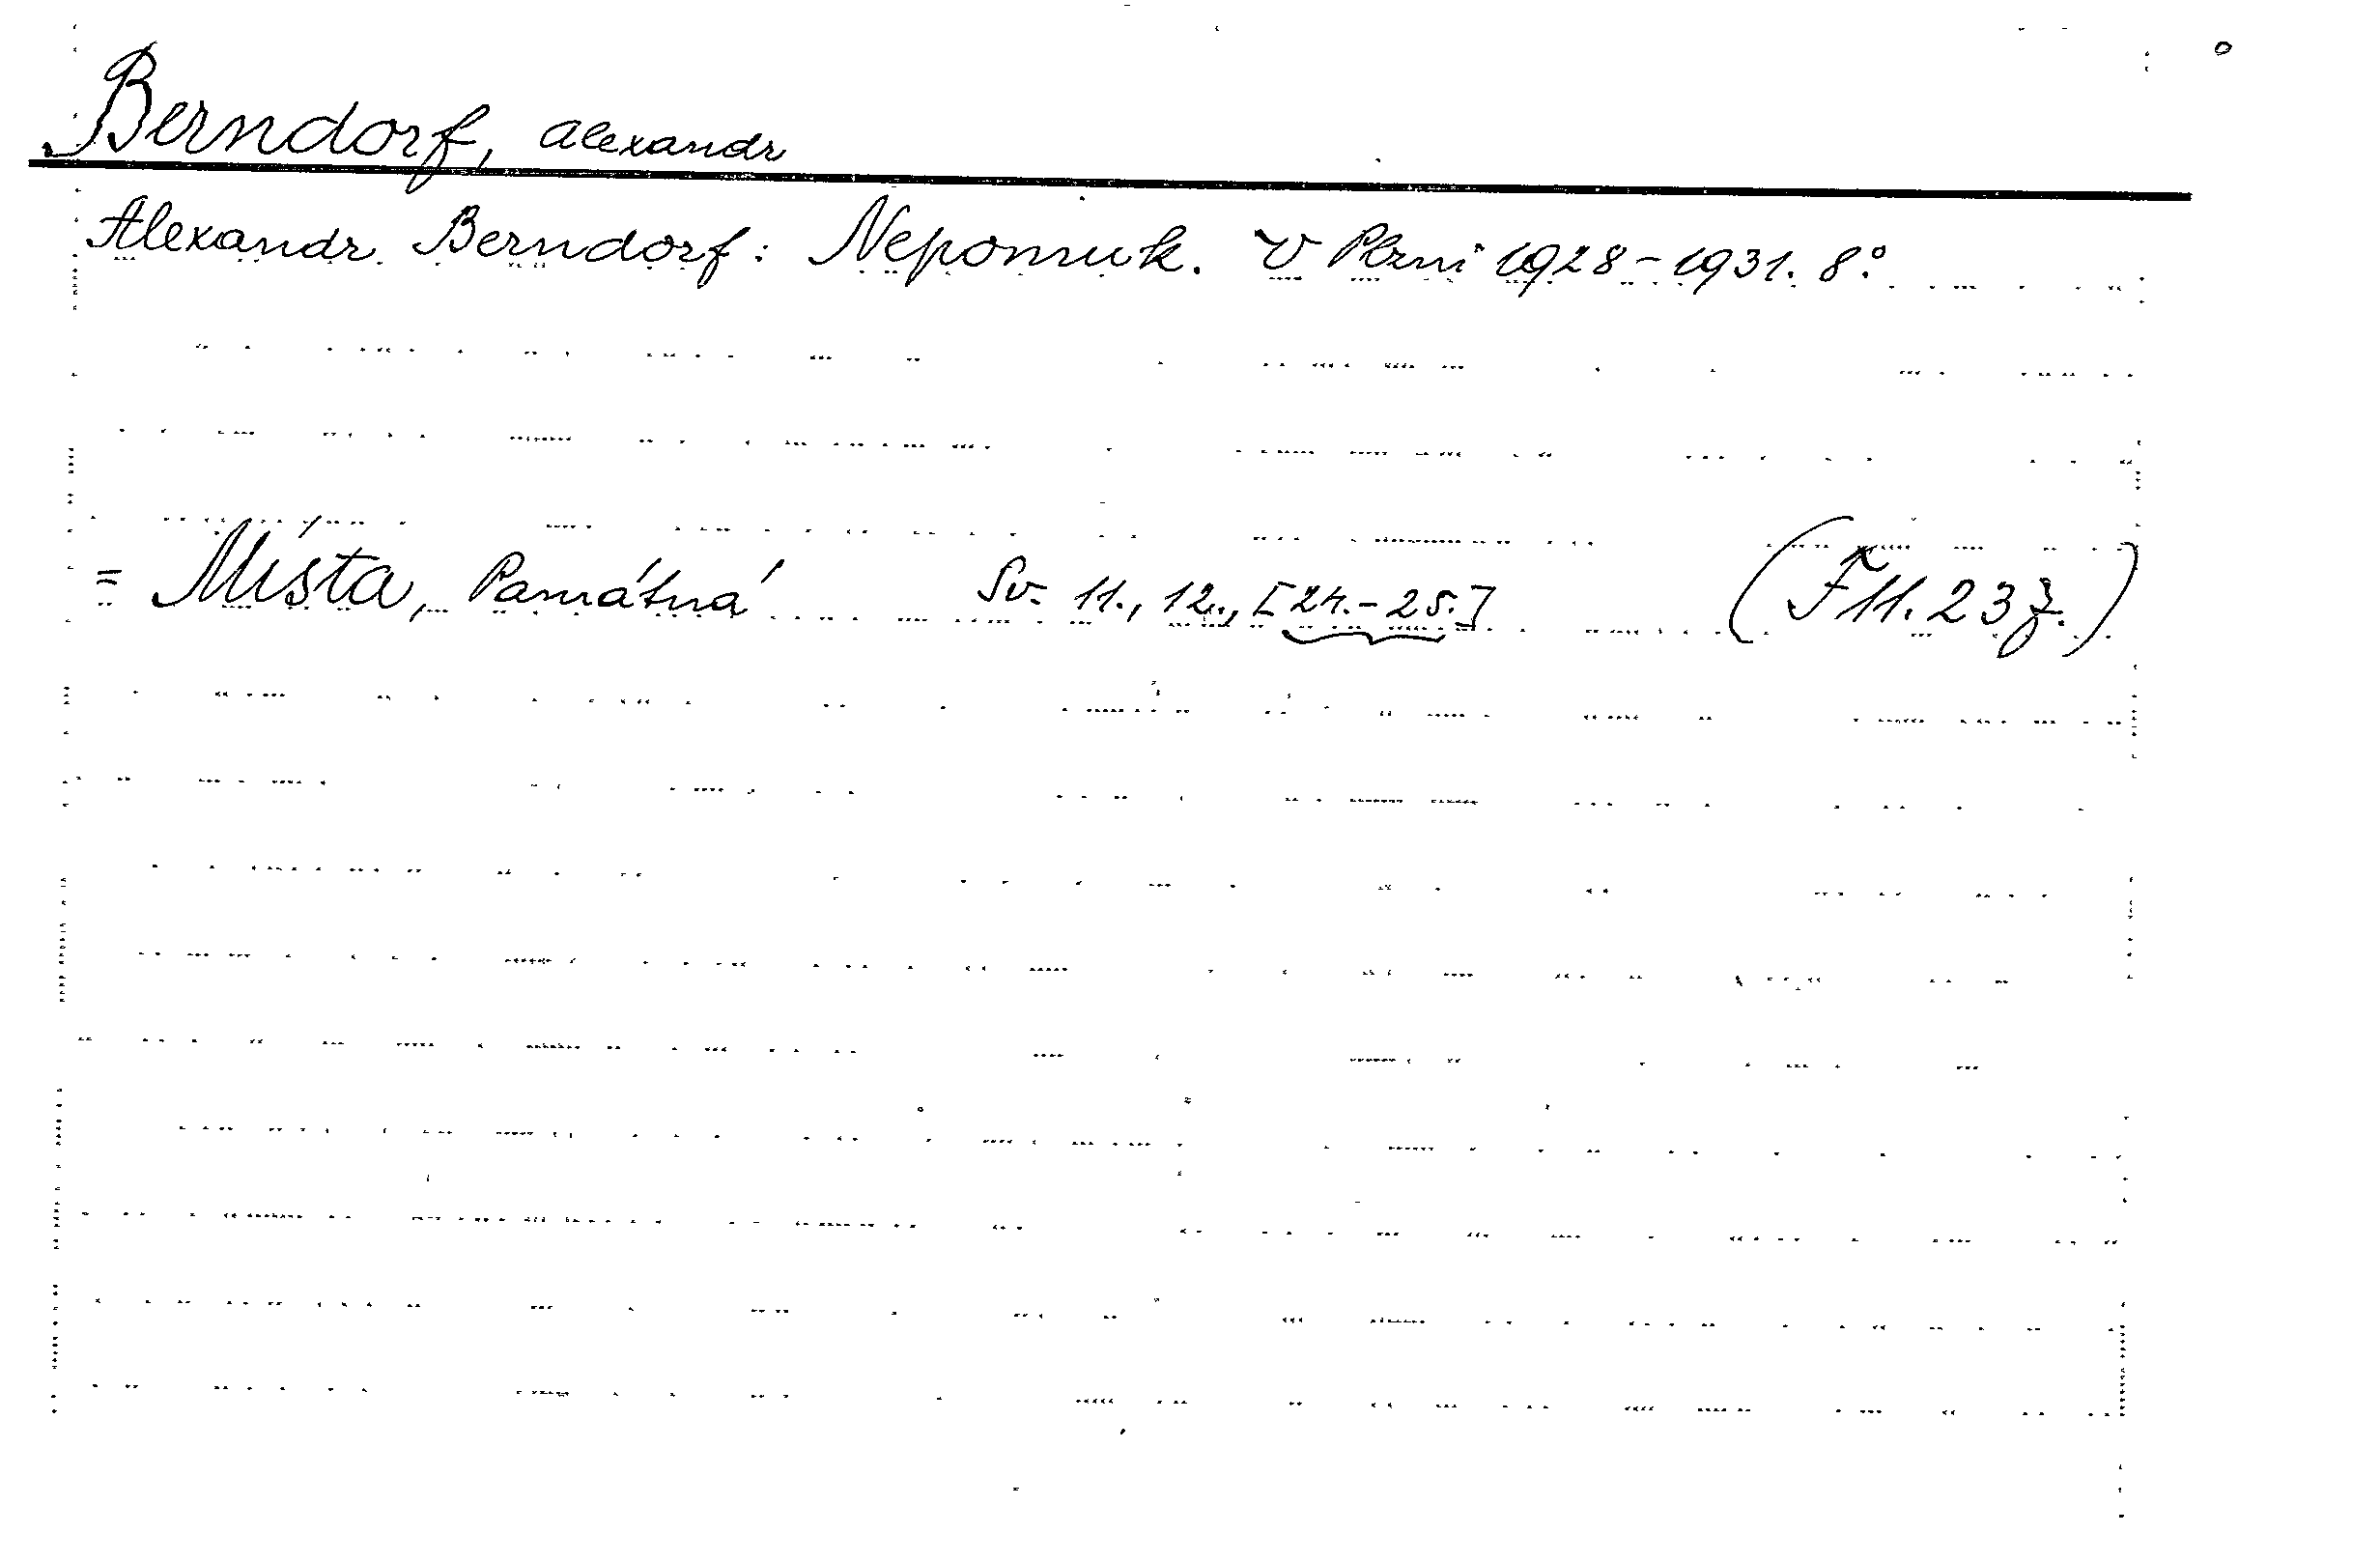 Berndorf, Alexandr
Alexandr Berndorf: Nepomuk. V Plzni 1928-1931. 8°.
= Místa, Památná Sv. 11., 12., [24.-25.] (F 11.237.)